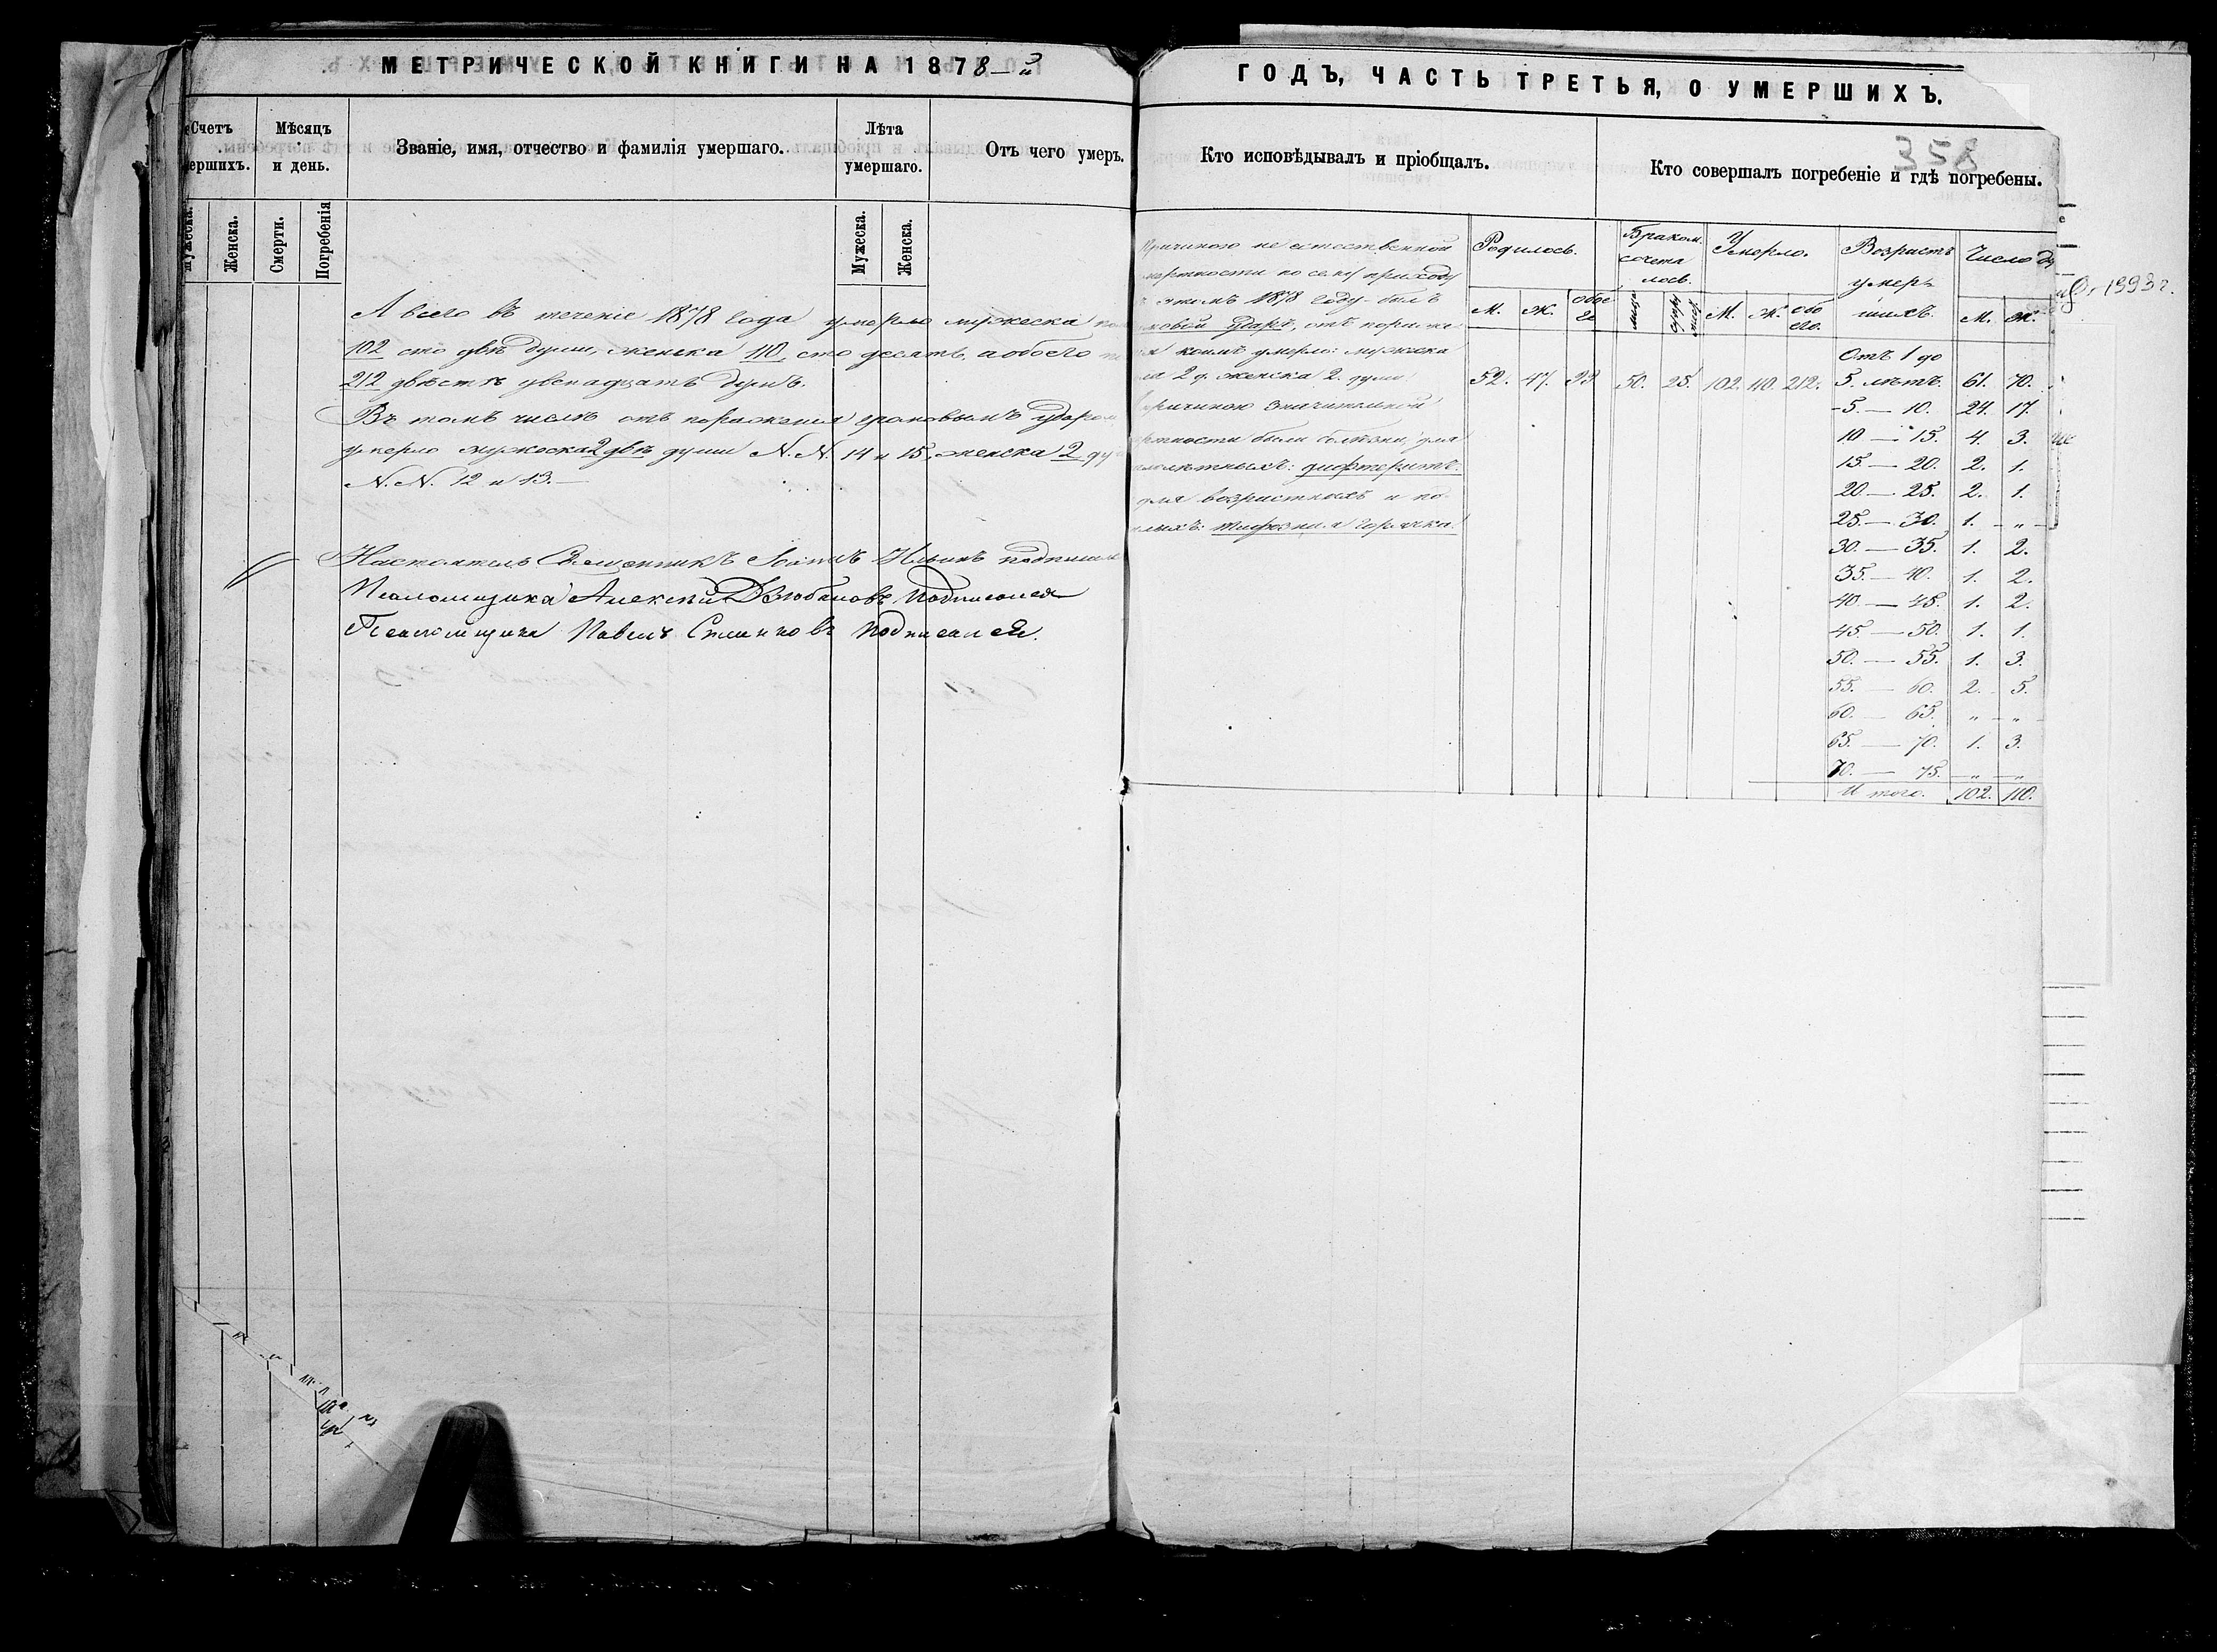 МЕТРИЧЕСКОЙ КНИГИ НА 1878-й
Счетъ
ершихъ.
Мѣсяцъ
и день.
Званіе, имя, отчество и фамилія умершаго.
Лѣта
умершаго.
Отъ чего умеръ.
Мужеска.
Женска.
Смерти.
Погребенія
Мужеска.
Женска.
А всего въ теченіе 1878 года умерло мужеска
102 сто двѣ души, женска 110, сто десять, а обоего
212 двѣсти двенадцать душъ.
Въ томъ числѣ отъ пораженія громовымъ ударом
умерло мужеска 2 двѣ души N.N. 14 и 15, женска 2 ду
N.N. 12 и 13.
Настоятель Священникъ Іоаннъ Ильинъ подписал
Псаломщикъ Алексѣй Дзюбановъ подписался
Псаломщикъ Павелъ подписался.
ГОДЪ, ЧАСТЬ ТРЕТЬЯ, О УМЕРШИХЪ.
358
Кто исповѣдывалъ и пріобщалъ.
Кто совершалъ погребеніе и гдѣ погребены.
Причиною не естественной
мертности по сему приходу
въ этомъ 1878 году былъ
мовой ударъ, отъ пораже
коимъ умерло: мужеска
2 д. женска 2. души
Причиною значительной
ертности были болѣзни, для
лѣтныхъ: дифтеритъ.
для возрастныхъ и по
лыхъ: тифозная горячка.
Родилось.
М. Ж. обое
го
52. 47. 93
Браком.
сочета
лось.
50. 25.
Умерло.
М. Ж. обо
его.
102. 110. 212.
Возрастъ
умер
шихъ.
Число ду
М. Ж.
Отъ 1 до
5. лѣтъ. 61. 70.
5. — 10. 24. 17.
10 — 15. 4. 3.
15. — 20. 2. 1.
20. — 25. 2. 1.
25. — 30. 1. — „ —
30. — 35. 1. 2.
35. — 40. 1. 2.
40 — 45. 1. 2.
45. — 50. 1. 1.
50. — 55. 1. 3.
55. — 60. 2. 5.
60. — 65. „ — „ —
65. — 70. 1. 3.
70. — 75. — „ — „
Итого. 102. 110.
1993 г.